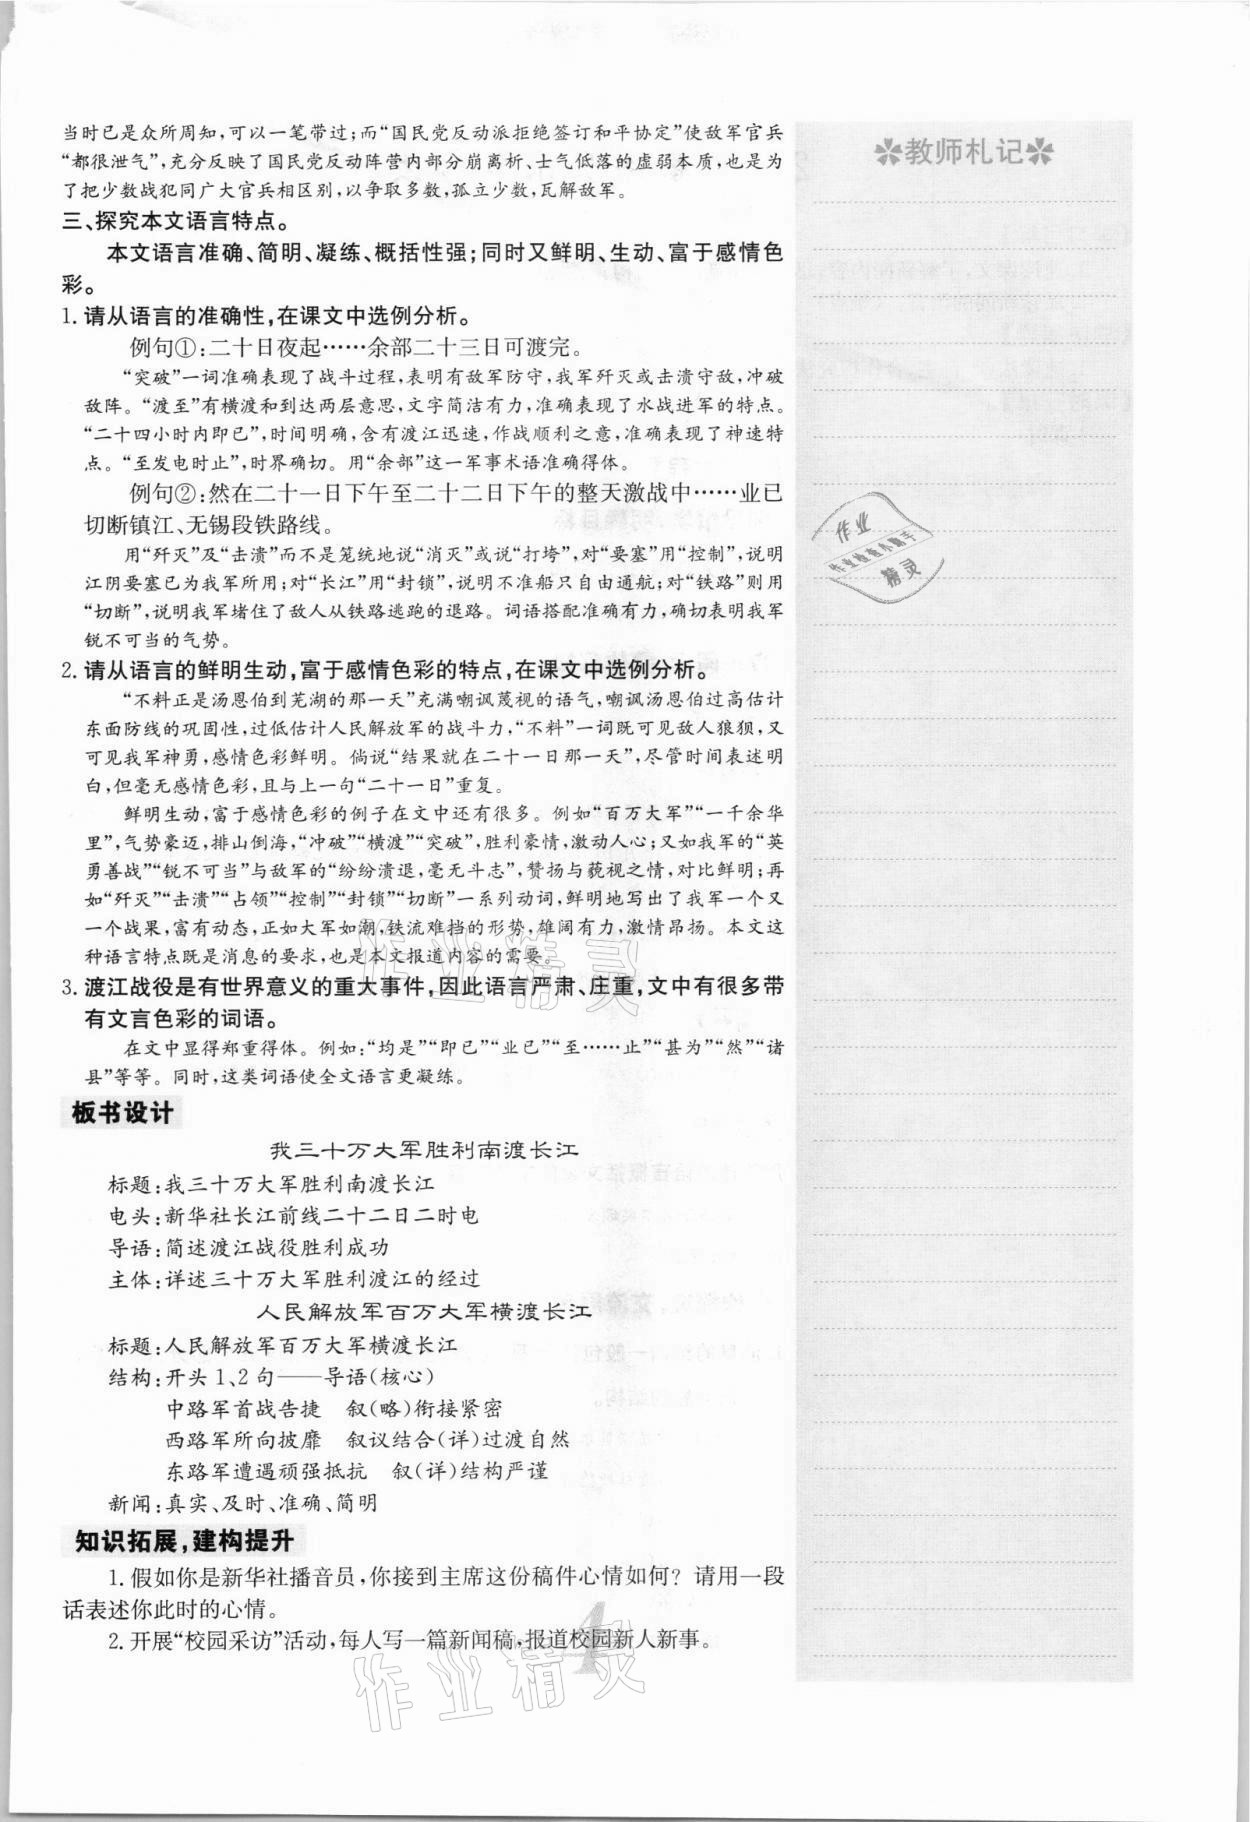 当时已是众所周知,可以一笔带过;而“国民党反动派拒绝签订和平协定”使敌军官兵
“都很泄气”,充分反映了国民党反动阵营内部分崩离析、士气低落的虚弱本质,也是为
了把少数战犯同广大官兵相区别,以争取多数,孤立少数,瓦解敌军。
三、探究本文语言特点。
本文语言准确、简明、凝练、概括性强;同时又鲜明、生动、富于感情色
彩。
1. 请从语言的准确性,在课文中选例分析。
例句①:二十日夜起……余部二十三日可渡完。
“突破”一词准确表现了战斗过程,表明有敌军防守,我军歼灭或击溃守敌,冲破
敌阵。“渡至”有横渡和到达两层意思,文字简洁有力,准确表现了水战进军的特点。
“二十四小时内即已”,时间明确,含有渡江迅速,作战顺利之意,准确表现了神速特
点。“至发电时止”,时界确切。用“余部”这一军事术语准确得体。
例句②:然在二十一日下午至二十二日下午的整天激战中……业已
切断镇江、无锡段铁路线。
用“歼灭”及“击溃”而不是笼统地说“消灭”或说“打垮”,对“要塞”用“控制”,说明
江阴要塞已为我军所用;对“长江”用“封锁”,说明不准船只自由通航;对“铁路”则用
“切断”,说明我军堵住了敌人从铁路逃跑的退路。词语搭配准确有力,确切表明我军
锐不可当的气势。
2. 请从语言的鲜明生动,富于感情色彩的特点,在课文中选例分析。
“不料正是汤恩伯到芜湖的那一天”充满嘲讽蔑视的语气,嘲讽汤恩伯过高估计
东面防线的巩固性,过低估计人民解放军的战斗力,“不料”一词既可见敌人狼狈,又
可见我军神勇,感情色彩鲜明。倘说“结果就在二十一日那一天”,尽管时间表述明
白,但毫无感情色彩,且与上一句“二十一日”重复。
鲜明生动,富于感情色彩的例子在文中还有很多。例如“百万大军”“一千余华
里”,气势豪迈,排山倒海,“冲破”“横渡”“突破”,胜利豪情,激动人心;又如我军的“英
勇善战”“锐不可当”与敌军的“纷纷溃退,毫无斗志”,赞扬与藐视之情,对比鲜明;再
如“歼灭”“击溃”“占领”“控制”“封锁”“切断”一系列动词,鲜明地写出了我军一个又
一个战果,富有动态,正如大军如潮,铁流难挡的形势,雄阔有力,激情昂扬。本文这
种语言特点既是消息的要求,也是本文报道内容的需要。
3. 渡江战役是有世界意义的重大事件,因此语言严肃、庄重,文中有很多带
有文言色彩的词语。
在文中显得郑重得体。例如:“均是”“即已”“业已”“至……止”“甚为”“然”“诸
县”等等。同时,这类词语使全文语言更凝练。
板书设计
我三十万大军胜利南渡长江
标题:我三十万大军胜利南渡长江
电头:新华社长江前线二十二日二时电
导语:简述渡江战役胜利成功
主体:详述三十万大军胜利渡江的经过
人民解放军百万大军横渡长江
标题:人民解放军百万大军横渡长江
结构:开头1、2句——导语(核心)
中路军首战告捷 叙(略)衔接紧密
西路军所向披靡 叙议结合(详)过渡自然
东路军遭遇顽强抵抗 叙(详)结构严谨
新闻:真实、及时、准确、简明
知识拓展,建构提升
1. 假如你是新华社播音员,你接到主席这份稿件心情如何?请用一段
话表述你此时的心情。
2. 开展“校园采访”活动,每人写一篇新闻稿,报道校园新人新事。
4
教师札记
作业
作业检查小助手
精灵
作业精灵
作业精灵